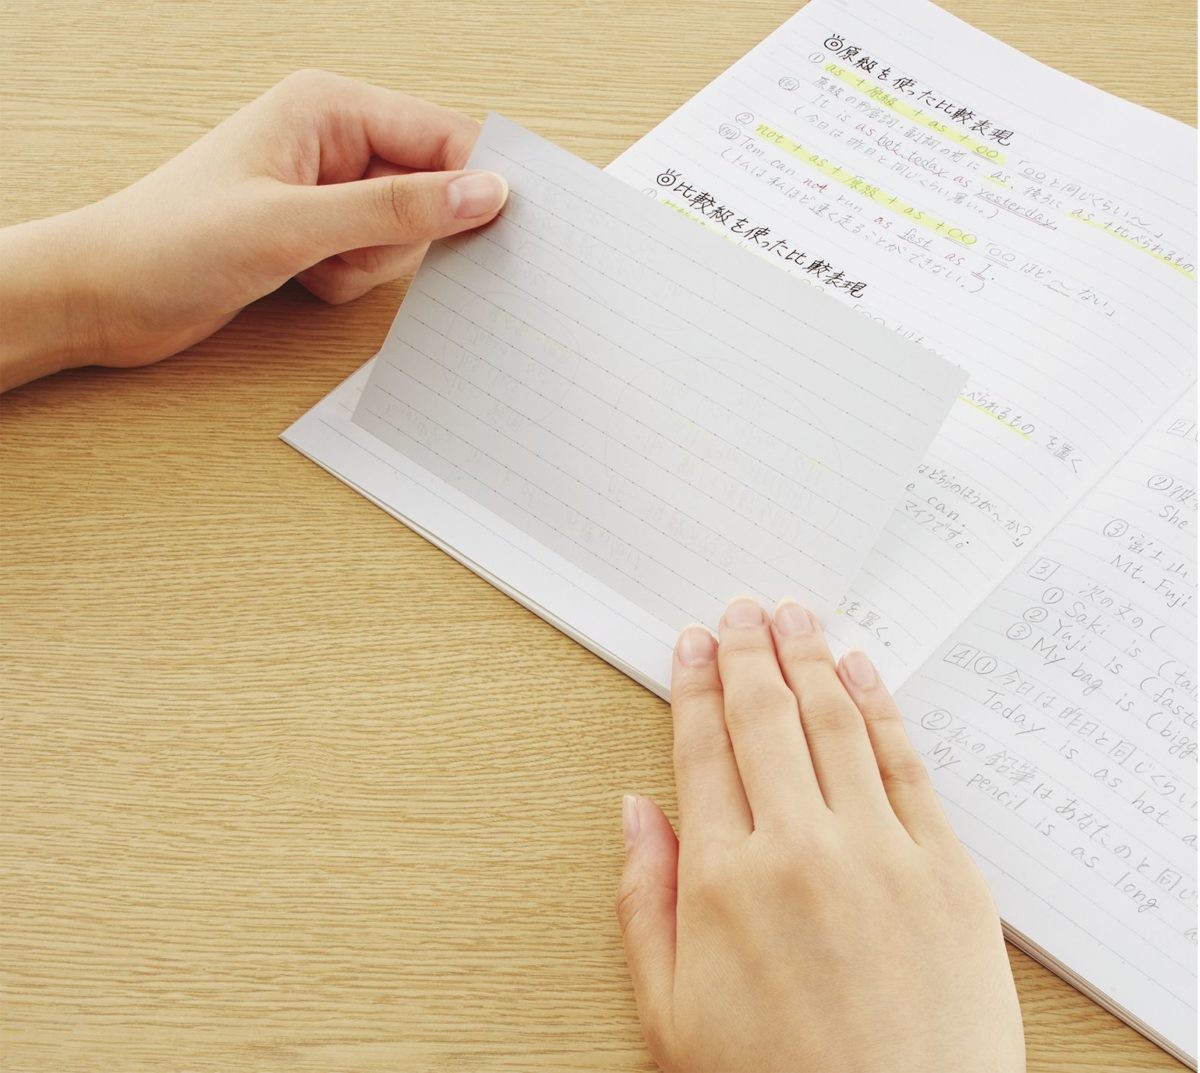 ◎原級を使った比較表現
① as + 原級 + as + ○○ 「○○と同じくらい〜」
原級の形容詞・副詞の前に as、後ろに as+比べられるもの
例 It is as hot today as yesterday.
(今日は昨日と同じくらい暑い。)
② not + as + 原級 + as + ○○ 「○○ほど〜ない」
例 Tom can not run as fast as I.
(トムは私ほど速く走ることができない。)
◎比較級を使った比較表現
①
比べられるもの を置く
はどちらのほうが〜か?」
can.
マイクです。
を置く。
2
②彼
She
③富士山
Mt. Fuji
3 次の文の(
① Saki is (ta
② Yuji is (fast
③ My bag is (bigg
4 ①今日は昨日と同じくらい
Today is as hot a
②私の鉛筆はあなたのと同じ
My pencil is as long a